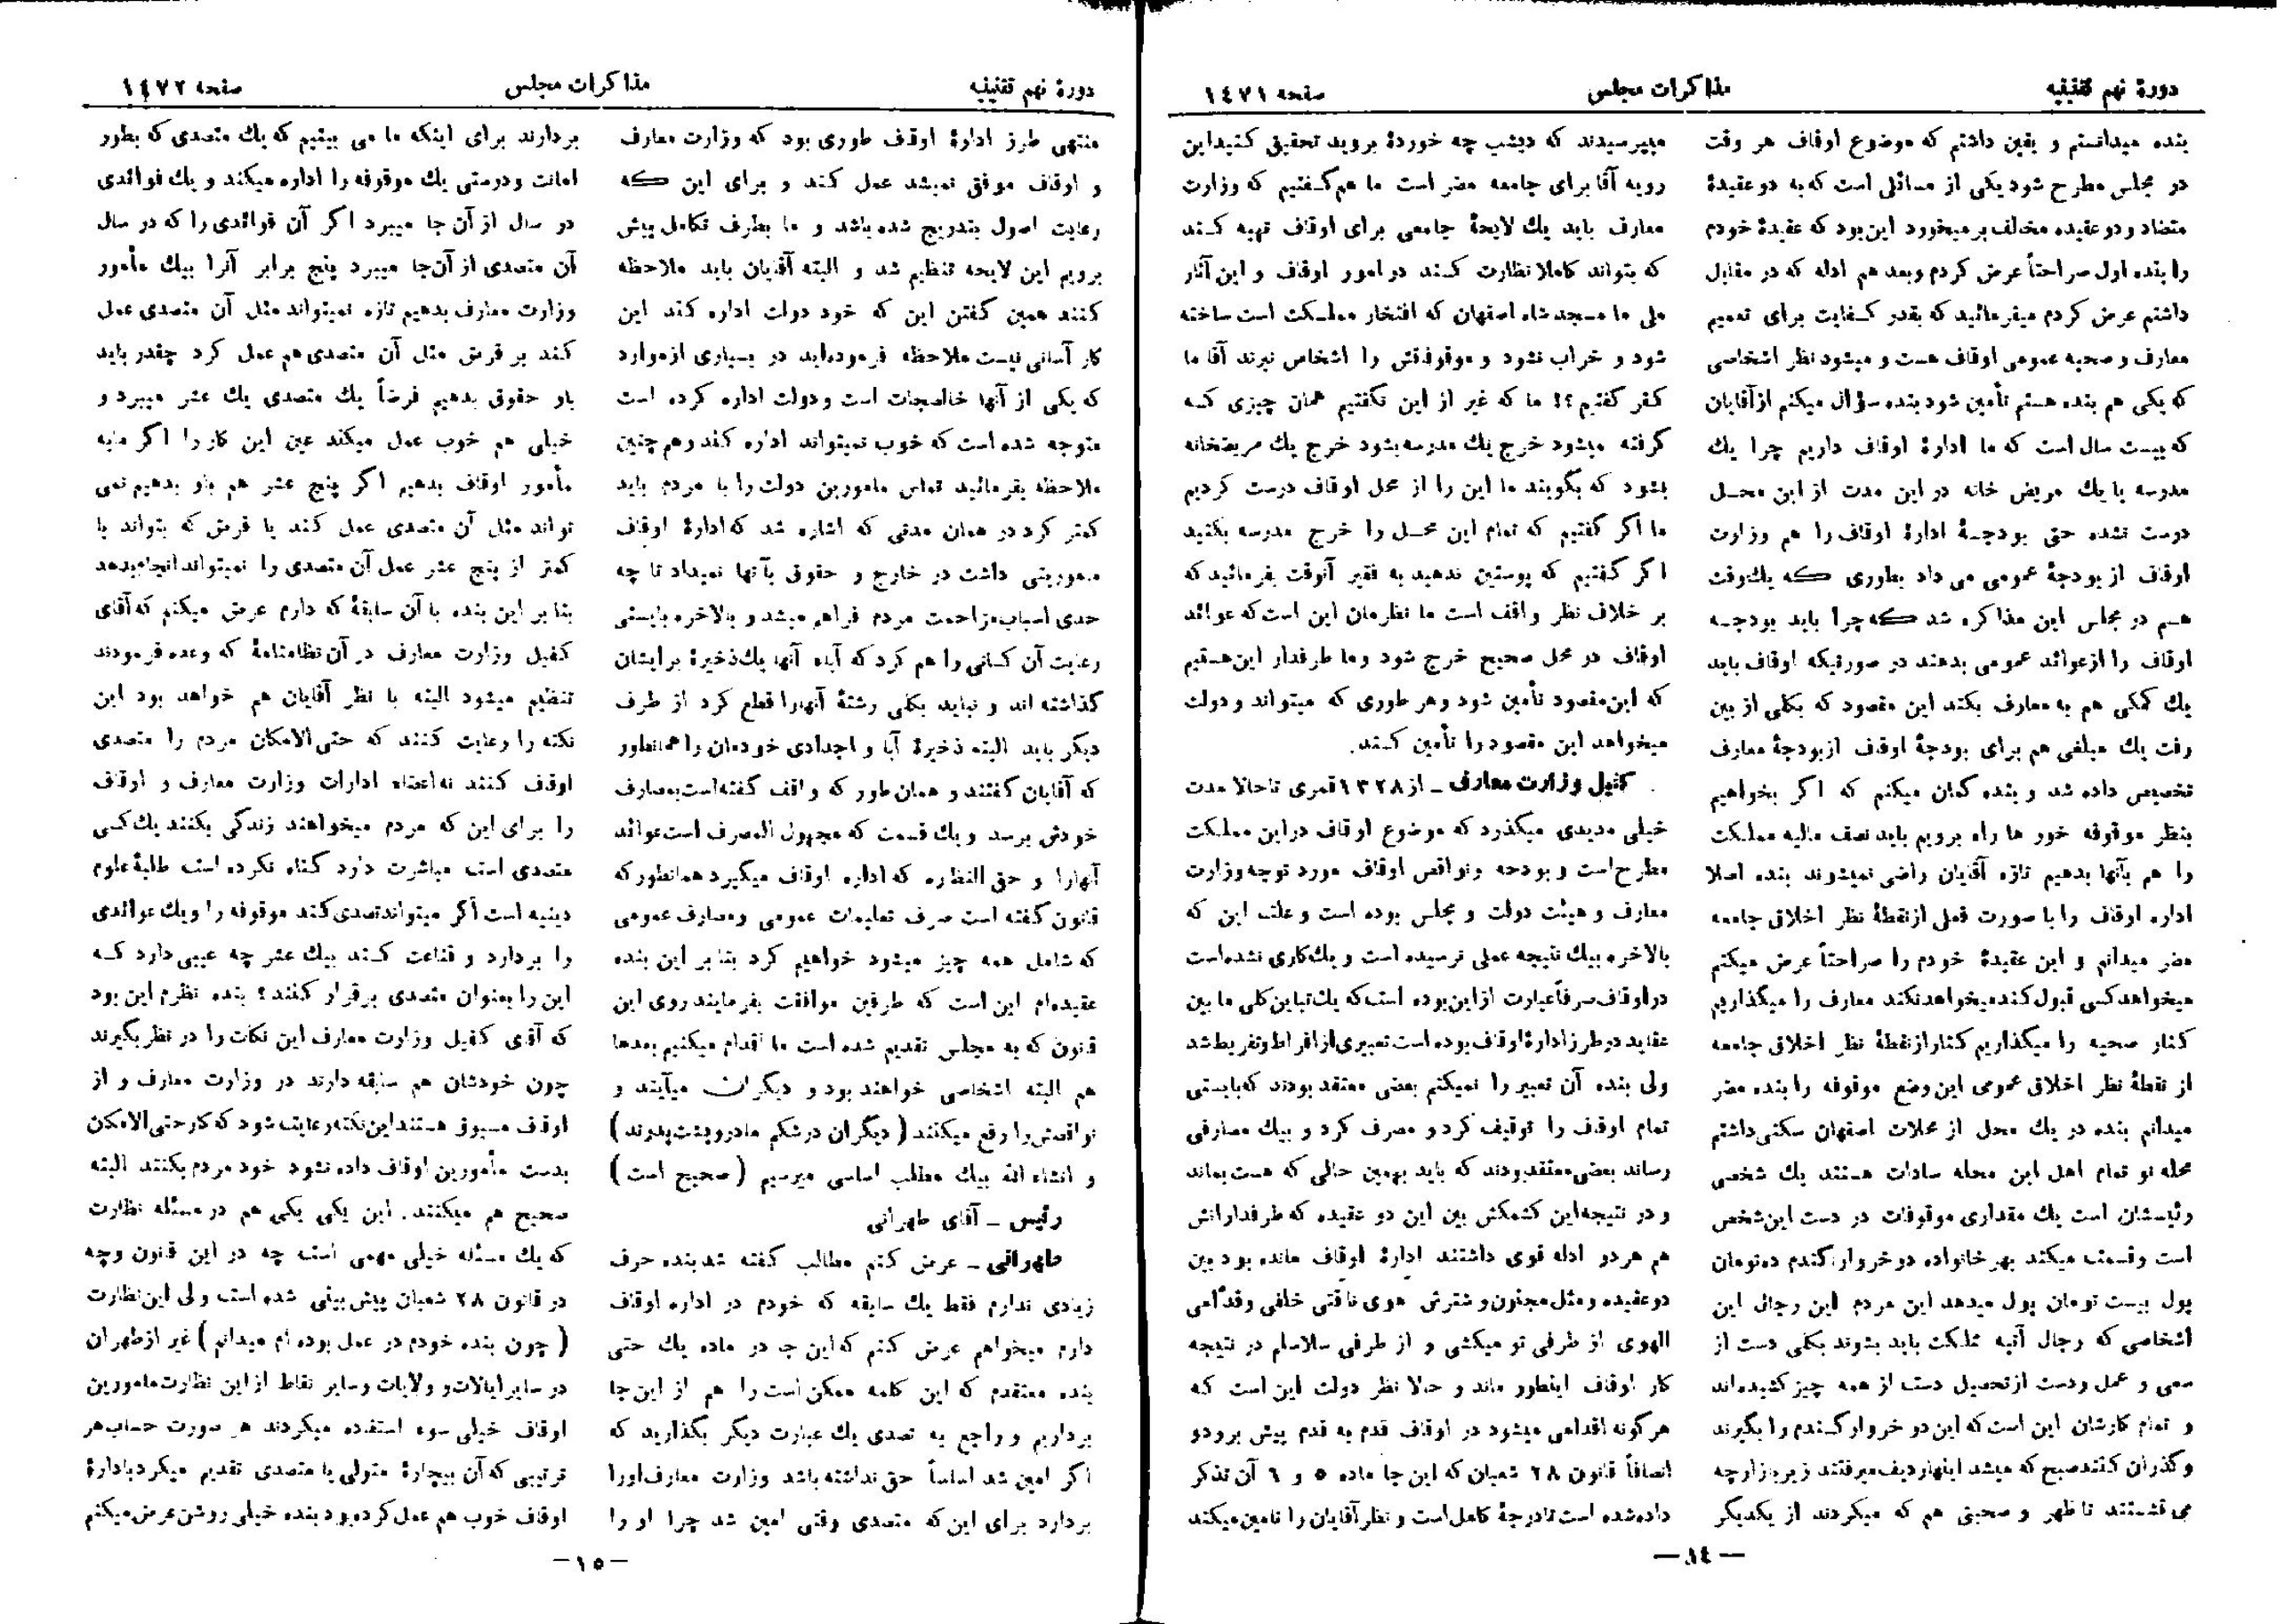 دورهٔ نهم تقنینیه
مذاکرات مجلس
صفحه ۱٤۷۱
بنده میدانستم و یقین داشتم که موضوع اوقاف هر وقت
در مجلس مطرح شود یکی از مسائلی است که به دو عقیدهٔ
متضاد و دو عقیده مخالف بر میخورد این بود که عقیدهٔ خودم
را بنده اول صراحتاً عرض کردم و بعد هم ادله که در مقابل
داشتم عرض کردم میفرمائید که بقدر کفایت برای تعمیم
معارف و صحیه عمومی اوقاف هست و میشود نظر اشخاصی
که یکی هم بنده هستم تأمین شود بنده سؤال میکنم از آقایان
که بیست سال است که ما ادارهٔ اوقاف داریم چرا یك
مدرسه یا یك مریض خانه در این مدت از این محل
درست نشده حتی بودجهٔ ادارهٔ اوقاف را هم وزارت
اوقاف از بودجهٔ عمومی می داد بطوری که یك وقت
هم در مجلس این مذاکره شد که چرا باید بودجه
اوقاف را از عوائد عمومی بدهند در صورتیکه اوقاف باید
یك کمکی هم به معارف بکند این مقصود که بکلی از بین
رفت یك مبلغی هم برای بودجهٔ اوقاف از بودجهٔ معارف
تخصیص داده شد و بنده گمان میکنم که اگر بخواهیم
بنظر موقوفه خور ها راه برویم باید نصف مالیه مملکت
را هم بآنها بدهیم تازه آقایان راضی نمیشوند بنده اصلا
اداره اوقاف را با صورت فعلی از نقطهٔ نظر اخلاق جامعه
مضر میدانم و این عقیدهٔ خودم را صراحتاً عرض میکنم
میخواهد کسی قبول کند میخواهد نکند معارف را میگذاریم
کنار صحیه را میگذاریم کنار از نقطهٔ نظر اخلاق جامعه
از نقطهٔ نظر اخلاق عمومی این وضع موقوفه را بنده مضر
میدانم بنده در یك محل از محلات اصفهان سکنی داشتم
محله نو تمام اهل این محله سادات هستند یك شخصی
رئیسشان است یك مقداری موقوفات در دست این شخص
است و قسمت میکند بهر خانواده دو خروار گندم ده تومان
پول بیست تومان پول میدهد این مردم این رجال این
اشخاصی که رجال آتیه مملکت باید بشوند بکلی دست از
سعی و عمل و دست از تحصیل دست از همه چیز کشیده اند
و تمام کارشان این است که این دو خروار گندم را بگیرند
و گذران کنند صبح که میشد اینها ردیف میرفتند زیر بازارچه
می نشستند تا ظهر و صحبتی هم که میکردند از یکدیگر
میپرسیدند که دیشب چه خوردهٔ بروید تحقیق کنید این
رویه آقا برای جامعه مضر است ما هم گفتیم که وزارت
معارف باید یك لایحهٔ جامعی برای اوقاف تهیه کند
که بتواند کاملا نظارت کند در امور اوقاف و این آثار
ملی ما مسجد شاه اصفهان که افتخار مملکت است ساخته
شود و خراب نشود و موقوفاتش را اشخاص نبرند آقا ما
کفر گفتیم ؟! ما که غیر از این نگفتیم همان چیزی که
گرفته میشود خرج یك مدرسه بشود خرج یك مریضخانه
بشود که بگویند ما این را از محل اوقاف درست کردیم
ما اگر گفتیم که تمام این محل را خرج مدرسه بکنید
اگر گفتیم که پوستین ندهید به فقیر آنوقت بفرمائید که
بر خلاف نظر واقف است ما نظرمان این است که عوائد
اوقاف در محل صحیح خرج شود و ما طرفدار این هستیم
که این مقصود تأمین شود و هر طوری که میتواند و دولت
میخواهد این مقصود را تأمین کند.
کفیل وزارت معارف ـ از ۱۳۲۸ قمری تا حالا مدت
خیلی مدیدی میگذرد که موضوع اوقاف در این مملکت
مطرح است و بودجه و نواقص اوقاف مورد توجه وزارت
معارف و هیئت دولت و مجلس بوده است و علت این که
بالاخره بیك نتیجه عملی نرسیده است و یك کاری نشده است
در اوقاف صرفاً عبارت از این بوده است که یك تباین کلی ما بین
عقاید در طرز ادارهٔ اوقاف بوده است تعبیری از افراط و تفریط شد
ولی بنده آن تعبیر را نمیکنم بعضی معتقد بودند که بایستی
تمام اوقاف را توقیف کرد و مصرف کرد و بیك مصارفی
رساند بعضی معتقد بودند که باید بهمین حالی که هست بماند
و در نتیجه این کشمکش بین این دو عقیده که طرفدارانش
هم هر دو ادله قوی داشتند ادارهٔ اوقاف مانده بود بین
دو عقیده و مثل مجنون و شترش هوی ناقتی خلفی و قدامی
الهوی از طرفی تو میکشی و از طرفی سالاسلم در نتیجه
کار اوقاف اینطور ماند و حالا نظر دولت این است که
هر گونه اقدامی میشود در اوقاف قدم به قدم پیش برود و
انصافاً قانون ۲۸ شعبان که این جا ماده ٥ و ٦ آن تذکر
داده شده است تا درجهٔ کامل است و نظر آقایان را تامین میکند
— ۱٤ —
دورهٔ نهم تقنینیه
مذاکرات مجلس
صفحه ۱٤۷۲
منتهی طرز ادارهٔ اوقاف طوری بود که وزارت معارف
و اوقاف موفق نمیشد عمل کند و برای این که
رعایت اصول بتدریج شده باشد و ما بطرف تکامل پیش
برویم این لایحه تنظیم شد و البته آقایان باید ملاحظه
کنند همین گفتن این که خود دولت اداره کند این
کار آسانی نیست ملاحظه فرموده اید در بسیاری از موارد
که یکی از آنها خالصجات است و دولت اداره کرده است
متوجه شده است که خوب نمیتواند اداره کند و هم چنین
ملاحظه بفرمائید تماس مامورین دولت را با مردم باید
کمتر کرد در همان مدتی که اشاره شد که ادارهٔ اوقاف
مامورینی داشت در خارج و حقوق بآنها نمیداد تا چه
حدی اسباب مزاحمت مردم فراهم میشد و بالاخره بایستی
رعایت آن کسانی را هم کرد که آباء آنها یك ذخیرهٔ برایشان
گذاشته اند و نباید بکلی رشتهٔ آنها را قطع کرد از طرف
دیگر باید البته ذخیرهٔ آبا و اجدادی خودمان را همانطور
که آقایان گفتند و همان طور که واقف گفته است بمصارف
خودش برسد و یك قسمت که مجهول المصرف است عوائد
آنها را و حق النظاره که اداره اوقاف میگیرد همانطور که
قانون گفته است صرف تعلیمات عمومی و مصارف عمومی
که شامل همه چیز میشود خواهیم کرد بنا بر این بنده
عقیده ام این است که طرفین موافقت بفرمایند روی این
قانون که به مجلس تقدیم شده است ما اقدام میکنیم بعدها
هم البته اشخاصی خواهند بود و دیگران میآیند و
نواقصش را رفع میکنند ( دیگران در شکم مادر و پشت پدرند )
و انشاء الله بیك مطلب اساسی میرسیم ( صحیح است )
رئیس ـ آقای طهرانی
طهرانی ـ عرض کنم مطالب گفته شد بنده حرف
زیادی ندارم فقط یك سابقه که خودم در اداره اوقاف
دارم میخواهم عرض کنم که این جا در ماده یك حتی
بنده معتقدم که این کلمه ممکن است را هم از این جا
برداریم و راجع به تصدی یك عبارت دیگر بگذارید که
اگر امین شد اساساً حق نداشته باشد وزارت معارف او را
بردارد برای این که متصدی وقتی امین شد چرا او را
بردارند برای اینکه ما می بینیم که یك متصدی که بطور
امانت و درستی یك موقوفه را اداره میکند و یك فوائدی
در سال از آن جا میبرد اگر آن فوائدی را که در سال
آن متصدی از آن جا میبرد پنج برابر آنرا بیك مأمور
وزارت معارف بدهیم تازه نمیتواند مثل آن متصدی عمل
کند بر فرض مثل آن متصدی هم عمل کرد چقدر باید
باو حقوق بدهیم فرضاً یك متصدی یك عشر میبرد و
خیلی هم خوب عمل میکند عین این کار را اگر ما به
مأمور اوقاف بدهیم اگر پنج عشر هم باو بدهیم نمی
تواند مثل آن متصدی عمل کند یا فرض که بتواند با
کمتر از پنج عشر عمل آن متصدی را نمیتواند انجام بدهد
بنا بر این بنده با آن سابقهٔ که دارم عرض میکنم که آقای
کفیل وزارت معارف در آن نظامنامهٔ که وعده فرمودند
تنظیم میشود البته با نظر آقایان هم خواهد بود این
نکته را رعایت کنند که حتی الامکان مردم را متصدی
اوقاف کنند نه اعضاء ادارات وزارت معارف و اوقاف
را برای این که مردم میخواهند زندگی بکنند یك کسی
متصدی است مباشرت دارد گناه نکرده است طلبهٔ علوم
دینیه است اگر میتواند تصدی کند موقوفه را و یك عوائدی
را بردارد و قناعت کند بیك عشر چه عیبی دارد که
این را بعنوان متصدی برقرار کنند؟ بنده نظرم این بود
که آقای کفیل وزارت معارف این نکات را در نظر بگیرند
چون خودشان هم سابقه دارند در وزارت معارف و از
اوقاف مسبوق هستند این نکته رعایت شود که کار حتی الامکان
بدست مأمورین اوقاف داده نشود خود مردم بکنند البته
صحیح هم میکنند. این یکی یکی هم در مسئله نظارت
که یك مسئله خیلی مهمی است چه در این قانون و چه
در قانون ۲۸ شعبان پیش بینی شده است ولی این نظارت
( چون بنده خودم در عمل بوده ام میدانم ) غیر از طهران
در سایر ایالات و ولایات و سایر نقاط از این نظارت مامورین
اوقاف خیلی سوء استفاده میکردند هر صورت حساب هر
ترتیبی که آن بیچارهٔ متولی یا متصدی تقدیم میکرد بادارهٔ
اوقاف خوب هم عمل کرده بود بنده خیلی روشن عرض میکنم
— ۱٥ —